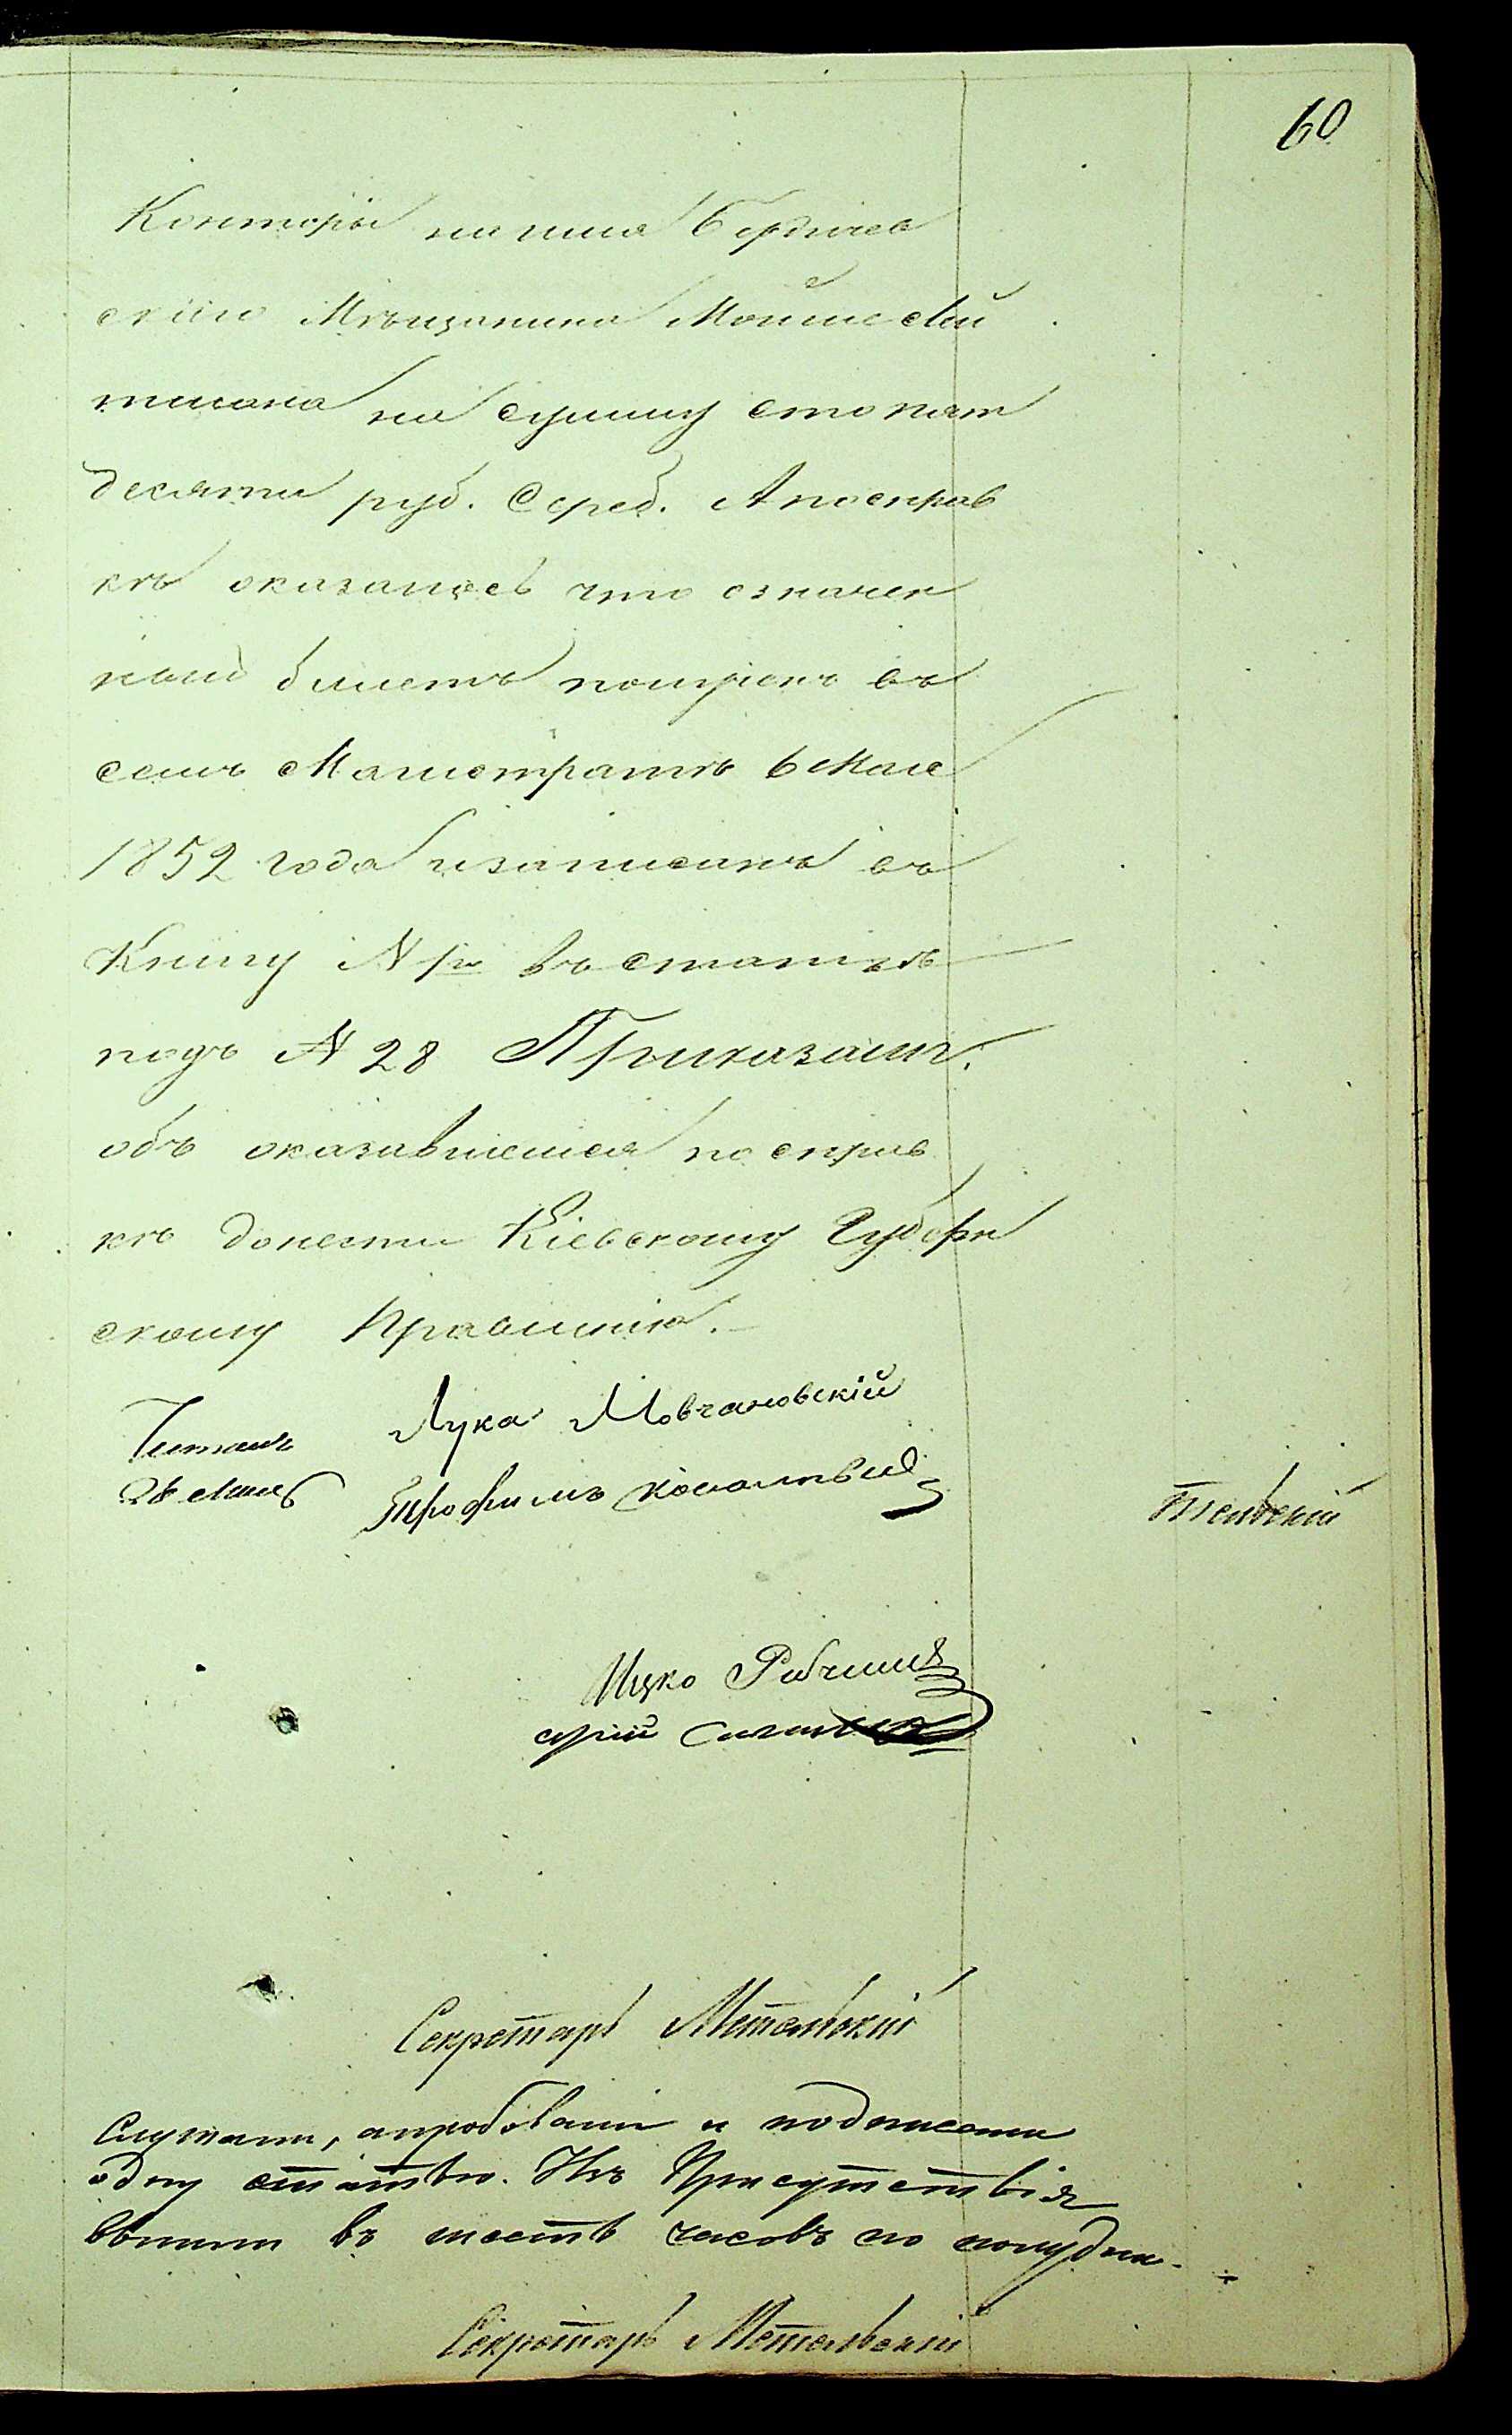 60
Конторы на имя Бердичев
скаго Мѣщанина Мойше Лей
тмана на сумму сто пят
десяти руб. Сереб. А по справ
кѣ оказалось что означен
ный билетъ получонъ въ
семъ Магистратѣ 6 Мая
1852 года и записанъ въ
Книгу N 1й въ статьѣ
подъ N 28 Приказали:
объ оказавшемся по справ
кѣ донести Кіевскому Губерн
скому Правленію.
Читалъ Лука Мовчановскій
28 Мая Трофимъ
тельскій
Ицко
Секретарь Метельскій
Слушали, апробовали и подписали
одну статью. Изъ Присутствія
вышли въ шесть часовъ по полудни.
Секретарь Метельскій